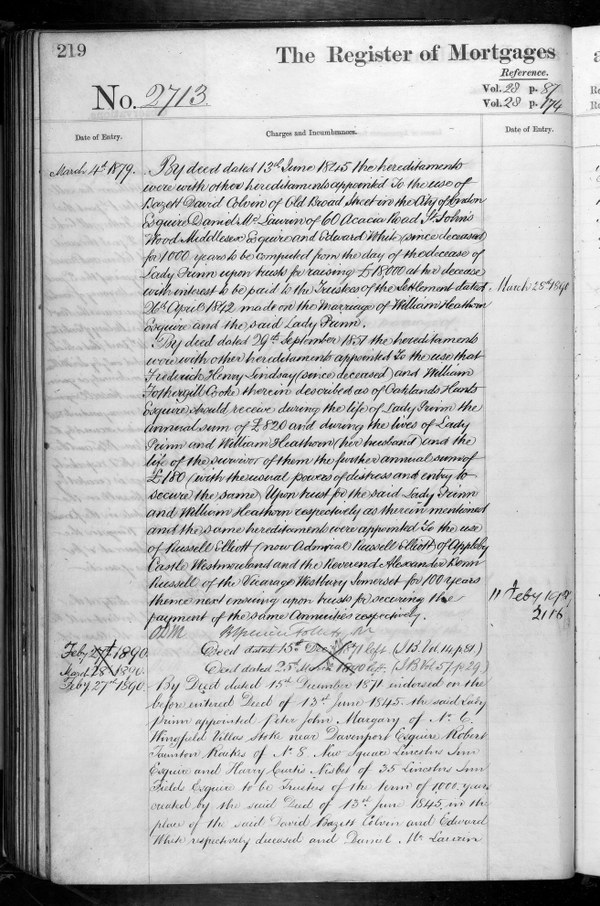 219
The Register of Mortgages
Reference.
No. 2713.
Vol. 28 p. 87
Vol. 28 p. 174
Date of Entry.
Charges and Incumbrances.
Date of Entry.
March 4th 1879.
By deed dated 13th June 1845 the hereditaments
were with other hereditaments appointed To the use of
Bazett David Colvin of Old Broad Street in the City of London
Esquire Daniel Mc Laurin of 60 Acacia Road St John's
Wood Middlesex Esquire and Edward White (since deceased)
for 1000 years to be computed from the day of the decease of
Lady Prinn upon trusts for raising £18,000 at her decease
with interest to be paid to the Trustees of the Settlement dated
March 28th 1890
26th April 1842 made on the Marriage of William Heathorn
Esquire and the said Lady Prinn.
By deed dated 29th September 1857 the hereditaments
were with other hereditaments appointed To the use that
Frederick Henry Lindsay (since deceased) and William
Fothergill Cooke therein described as of Oaklands Hants
Esquire should receive during the life of Lady Prinn the
annual sum of £820 and during the lives of Lady
Prinn and William Heathorn (her husband) and the
life of the survivor of them the further annual sum of
£180 (with the usual powers of distress and entry to
secure the same) Upon trust for the said Lady Prinn
and William Heathorn respectively as therein mentioned
and the same hereditaments were appointed To the use
of Russell Elliott (now Admiral Russell Elliott of Appleby
Castle Westmorland and the Reverend Alexander Benn
Russell of the Vicarage Westbury Somerset for 100 years
thence next ensuing upon trusts for securing the
payment of the same Annuities respectively.
11th Feby
2116
Feby 27th 1890.
Deed dated 15th Dec 1871 left (SB. Vol. 14 p. 81.)
March 28th 1890.
Deed dated 25th March 1890 left. (SB Vol. 57. p 29)
Feby 27th 1890.
By Deed dated 15th December 1871 endorsed on the
before entered Deed of 13th June 1845. the said Lady
Prinn appointed Peter John Margary of No. 6
Wingfield Villas Stoke near Davenport Esquire Robert
Taunton Raikes of No. 8. New Square Lincolns Inn
Esquire and Harry Curtis Nisbet of 35 Lincolns Inn
Fields Esquire to be Trustees of the term of 1000 years
created by the said Deed of 13th June 1845, in the
place of the said David Bazett Colvin and Edward
White respectively deceased and Daniel Mc Laurin